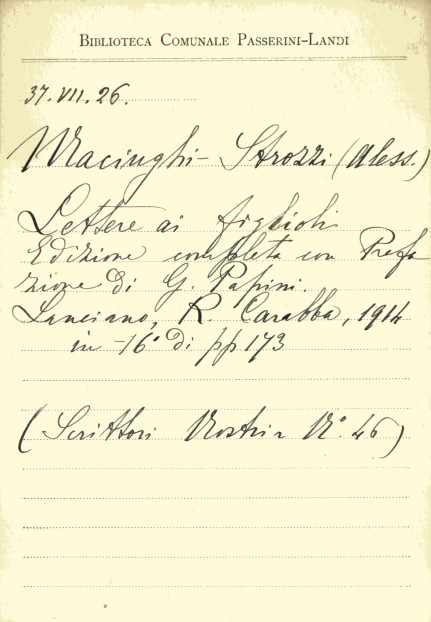 BIBLIOTECA COMUNALE PASSERINI-LANDI
37.VII.26.
Macinghi-Strozzi (Aless.)
Lettere ai figlioli
Edizione completa con Prefa
zione di G. Papini.
Lanciano, R. Carabba, 1914
in-16° di pp 173
(Scrittori Nostri N°. 46)